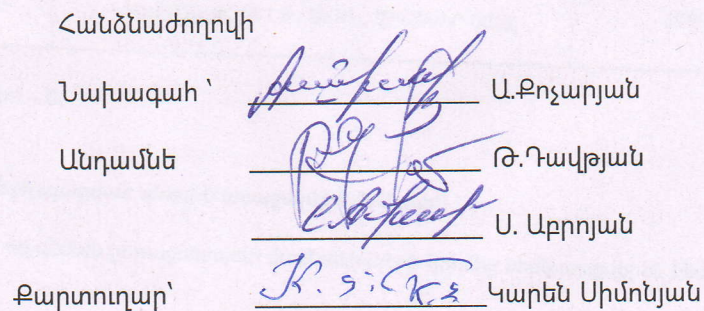 Հանձնաժողովի
Նախագահ ՝ Ա.Քոչարյան
Անդամնե Թ.Դավթյան
Ս. Աբրոյան
Քարտուղար՝ Կարեն Սիմոնյան